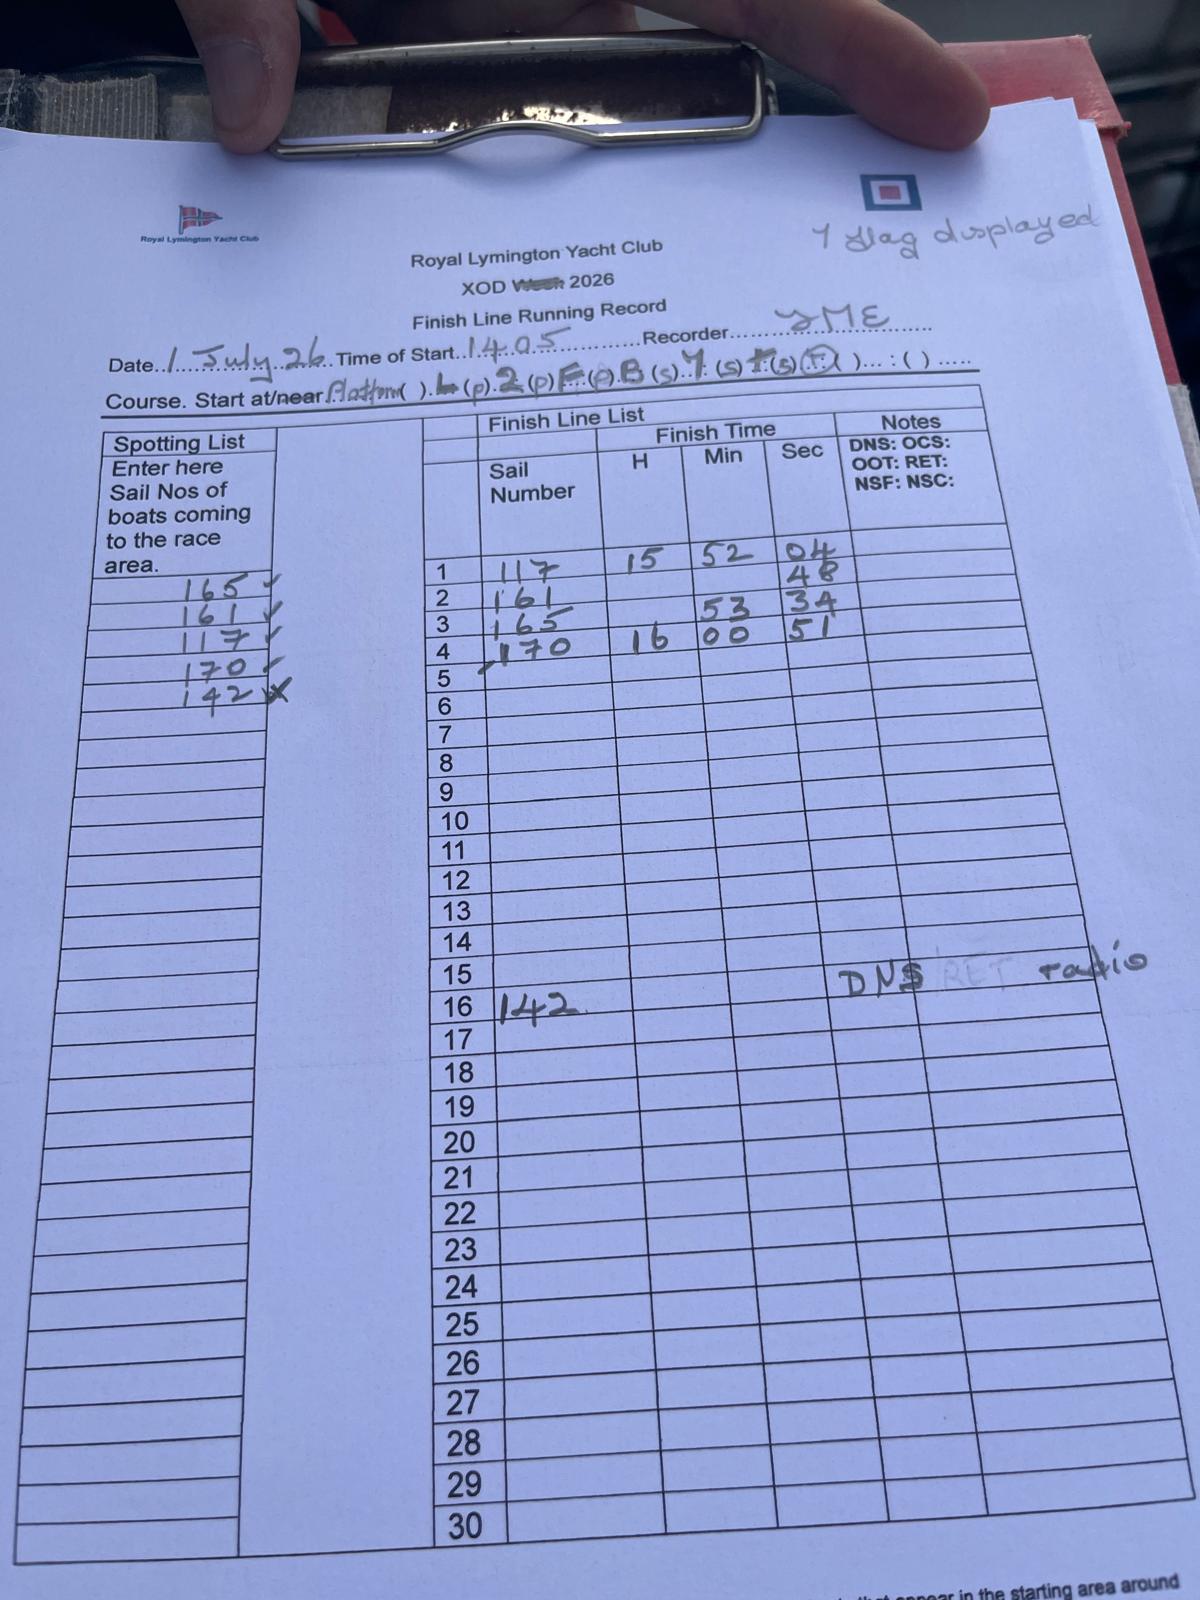 Royal Lymington Yacht Club
Y flag displayed
Royal Lymington Yacht Club
XOD Week 2026
Finish Line Running Record
Date..1 July 26. Time of Start..14 05..........Recorder.......JME
Course. Start at/near Platform( ).L(p).2(p)F.(p).B(s).Y.(s) (s) ( )...:( ).....
Spotting List
Enter here
Sail Nos of
boats coming
to the race
area.
165 ✓
161 ✓
117 ✓
170 ✓
142 x
Finish Line List
Finish Time
Notes
Sail
Number
H
Min
Sec
DNS: OCS:
OOT: RET:
NSF: NSC:
1 117 15 52 04
2 161 48
3 165 53 34
4 170 16 00 51
5
6
7
8
9
10
11
12
13
14
15
16 142 DNS RET radio
17
18
19
20
21
22
23
24
25
26
27
28
29
30
that appear in the starting area around